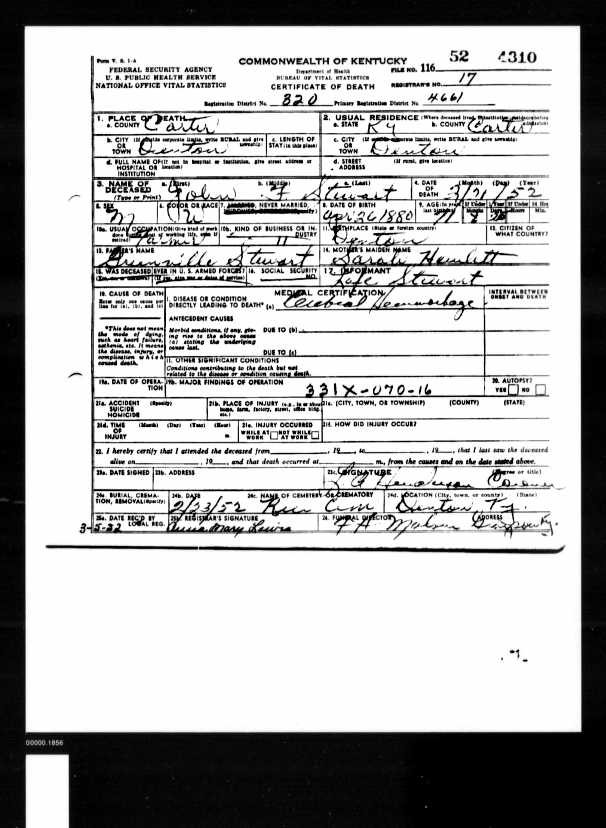 Form V. S. 1-A
FEDERAL SECURITY AGENCY
U. S. PUBLIC HEALTH SERVICE
NATIONAL OFFICE VITAL STATISTICS
COMMONWEALTH OF KENTUCKY
Department of Health
BUREAU OF VITAL STATISTICS
CERTIFICATE OF DEATH
52 4310
FILE NO. 116
REGISTRAR'S NO. 17
Registration District No. 320 Primary Registration District No. 4661
1. PLACE OF DEATH
a. COUNTY Carter
2. USUAL RESIDENCE (Where deceased lived.
a. STATE Ky b. COUNTY Carter
b. CITY OR TOWN Denton
c. LENGTH OF STAY (in this place)
c. CITY OR TOWN Denton
d. FULL NAME OF (If not in hospital or institution, give street address or location) HOSPITAL OR INSTITUTION
d. STREET ADDRESS (If rural, give location)
3. NAME OF DECEASED (Type or Print) a. (First) John b. (Middle) F c. (Last) Stewart
4. DATE OF DEATH (Month) (Day) (Year)
5. SEX M
6. COLOR OR RACE W
7. MARRIED, NEVER MARRIED,
8. DATE OF BIRTH Apr 26 1880
9. AGE
10a. USUAL OCCUPATION (Give kind of work Farmer
10b. KIND OF BUSINESS OR INDUSTRY
11. BIRTHPLACE (State or foreign country) Denton
12. CITIZEN OF WHAT COUNTRY?
13. FATHER'S NAME Greenville Stewart
14. MOTHER'S MAIDEN NAME Sarah Hamlett
15. WAS DECEASED EVER IN U. S. ARMED FORCES?
16. SOCIAL SECURITY NO.
17. INFORMANT Stewart
18. CAUSE OF DEATH
Enter only one cause per line for (a), (b), and (c)
MEDICAL CERTIFICATION
I. DISEASE OR CONDITION DIRECTLY LEADING TO DEATH* (a) Cerebral Hemorrhage
INTERVAL BETWEEN ONSET AND DEATH
ANTECEDENT CAUSES
*This does not mean the mode of dying, such as heart failure, asthenia, etc. It means the disease, injury, or complication which caused death.
Morbid conditions, if any, giving rise to the above cause (a) stating the underlying cause last.
DUE TO (b)
DUE TO (c)
II. OTHER SIGNIFICANT CONDITIONS
Conditions contributing to the death but not related to the disease or condition causing death.
19a. DATE OF OPERATION
19b. MAJOR FINDINGS OF OPERATION
331X-070-16
20. AUTOPSY? YES NO
21a. ACCIDENT SUICIDE HOMICIDE (Specify)
21b. PLACE OF INJURY (e.g., in or about home, farm, factory, street, office bldg., etc.)
21c. (CITY, TOWN, OR TOWNSHIP) (COUNTY) (STATE)
21d. TIME OF INJURY (Month) (Day) (Year) (Hour) m.
21e. INJURY OCCURRED WHILE AT WORK NOT WHILE AT WORK
21f. HOW DID INJURY OCCUR?
22. I hereby certify that I attended the deceased from , 19 , to , 19 , that I last saw the deceased
alive on , 19 , and that death occurred at m., from the causes and on the date stated above.
23a. DATE SIGNED
23b. ADDRESS
23c. SIGNATURE (Degree or title)
Henderson Coroner
24a. BURIAL, CREMATION, REMOVAL (Specify)
24b. DATE 2/23/52
24c. NAME OF CEMETERY OR CREMATORY Cem
24d. LOCATION (City, town, or county) (State) Denton, Ky.
25a. DATE REC'D BY LOCAL REG. 3-5-52
25b. REGISTRAR'S SIGNATURE Mary Lewis
26. FUNERAL DIRECTOR ADDRESS
Malone Grayson Ky.
00000.1856